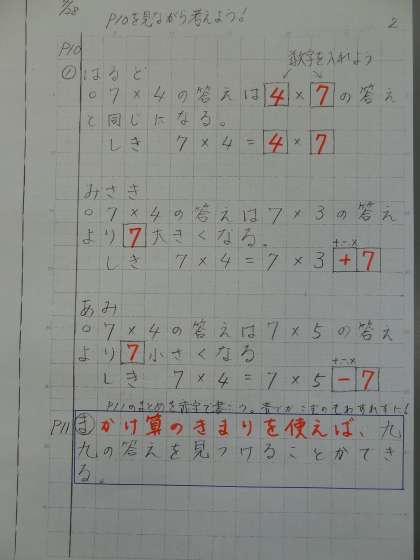 11/28
P10を見ながら考えよう!
2
P10
数字を入れよう
① はると
○ 7×4の答えは4×7の答え
と同じになる。
しき 7×4=4×7
みさき
○ 7×4の答えは7×3の答え
より7大きくなる。
+-×
しき 7×4=7×3+7
あみ
○ 7×4の答えは7×5の答え
より7小さくなる
+-×
しき 7×4=7×5-7
P11のまとめを赤字で書こう。
P11 ま かけ算のきまりを使えば、九
九の答えを見つけることができ
る。